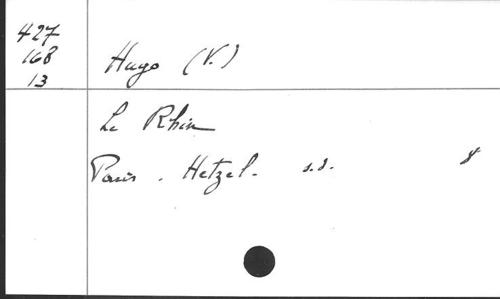 427
168
13
Hugo (V.)
Le Rhin
Paris. Hetzel. s.d. 8